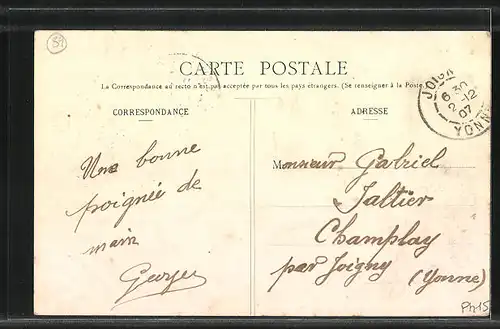 59
CARTE POSTALE
La Correspondance au recto n'est pas acceptée par tous les pays étrangers. (Se renseigner à la Poste
CORRESPONDANCE
ADRESSE
JOIGN
6 30
2-12
07
YONNE
Une bonne
poignée de
main
Georges
Monsieur Gabriel
Jaltier
Champlay
par Joigny
(Yonne)
Ph15